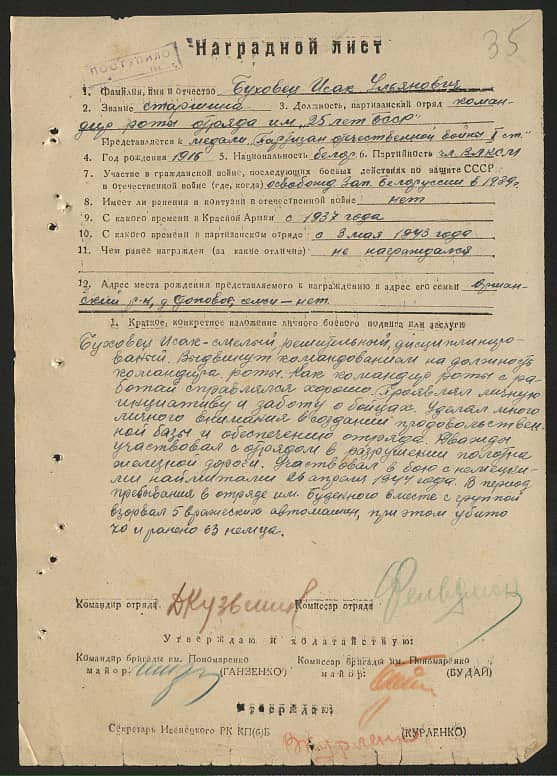 35
ПОСТУПИЛО
Наградной лист
1. Фамилия, имя и отчество Буховец Исак Ульянович
2. Звание старшина 3. Должность, партизанский отряд коман-
дир роты отряда им. "25 лет БССР"
Представляется к медали "Партизан отечественной войны I ст."
4. Год рождения 1916 5. Национальность белор. 6. Партийность чл. ВЛКСМ
7. Участие в гражданской войне, последующих боевых действиях по защите СССР
в отечественной войне (где, когда) освобожд. Зап. Белоруссии в 1939г.
8. Имеет ли ранения и контузии в отечественной войне нет
9. С какого времени в Красной Армии с 1937 года
10. С какого времени в партизанском отряде с 3 мая 1943 года
11. Чем ранее награжден (за какие отличия) не награждался
12. Адрес места рождения представляемого к награждению и адрес его семьи Оршан-
ский р-н, д. семьи - нет.
1. Краткое, конкретное изложение личного боевого подвига или заслуг
Буховец Исак - смелый, решительный, дисциплиниро-
ванный. Выдвинут командованием на должность
командира роты. Как командир роты с ра-
ботай справлялся хорошо. Проявлял личную
инициативу и заботу о бойцах. Уделал много
личного внимания в создании продовольствен-
ной базы и обеспечению отряда. Дважды
участвовал с отрядом в разрушении полотна
железной дороги. Участвовал в бою с немецки-
ми наймитами 26 апреля 1944 года. В период
пребывания в отряде им. Буденного вместе с группой
взорвал 5 вражеских автомашин, при этом убито
40 и ранено 63 немца.
Командир отряда Комиссар отряда
Утверждаю и ходатайствую:
Командир бригады им. Пономаренко Комиссар бригады им. Пономаренко
майор: (ГАНЗЕНКО) майор: (БУДАЙ)
Утверждаю:
Секретарь Ивенецкого РК КП(б)Б Журленко (КУРЛЕНКО)